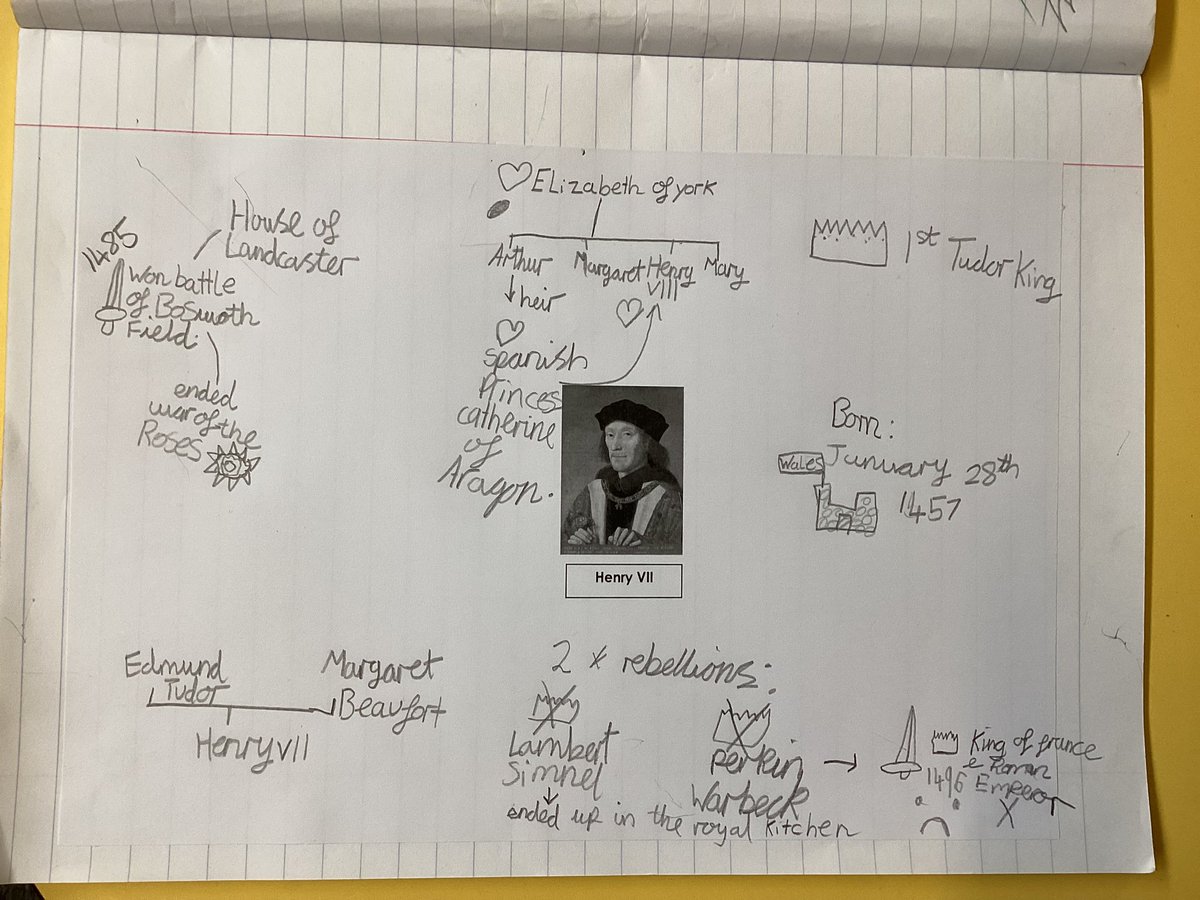 1485
House of
Landcaster
won battle
of Bosmoth
Field.
ended
war of the
Roses
Elizabeth of york
Arthur
Margaret
Henry
VIII
Mary
heir
spanish
Princess
catherine
of
Aragon.
1st Tudor King
Born:
Wales
January 28th
1457
Henry VII
Edmund
Tudor
Margaret
Beaufort
Henry VII
2 x rebellions:
Lambert
Simnel
ended up in the royal kitchen
perkin
Warbeck
King of france
& Roman
1496 Emperor
X